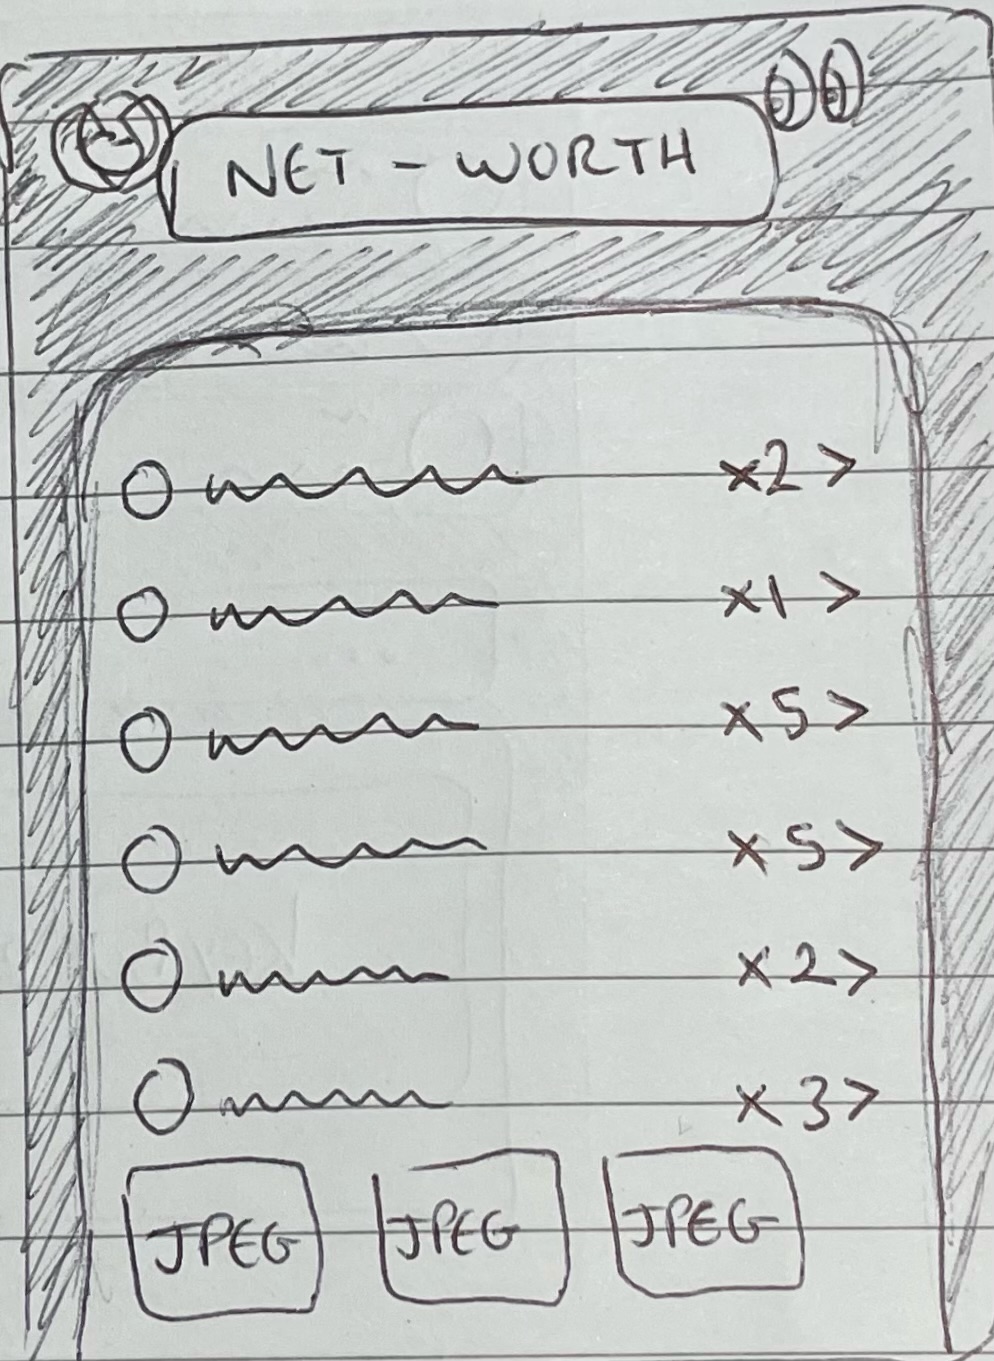 NET - WORTH
x2 >
x1 >
x5 >
x5 >
x2 >
x3 >
JPEG JPEG JPEG